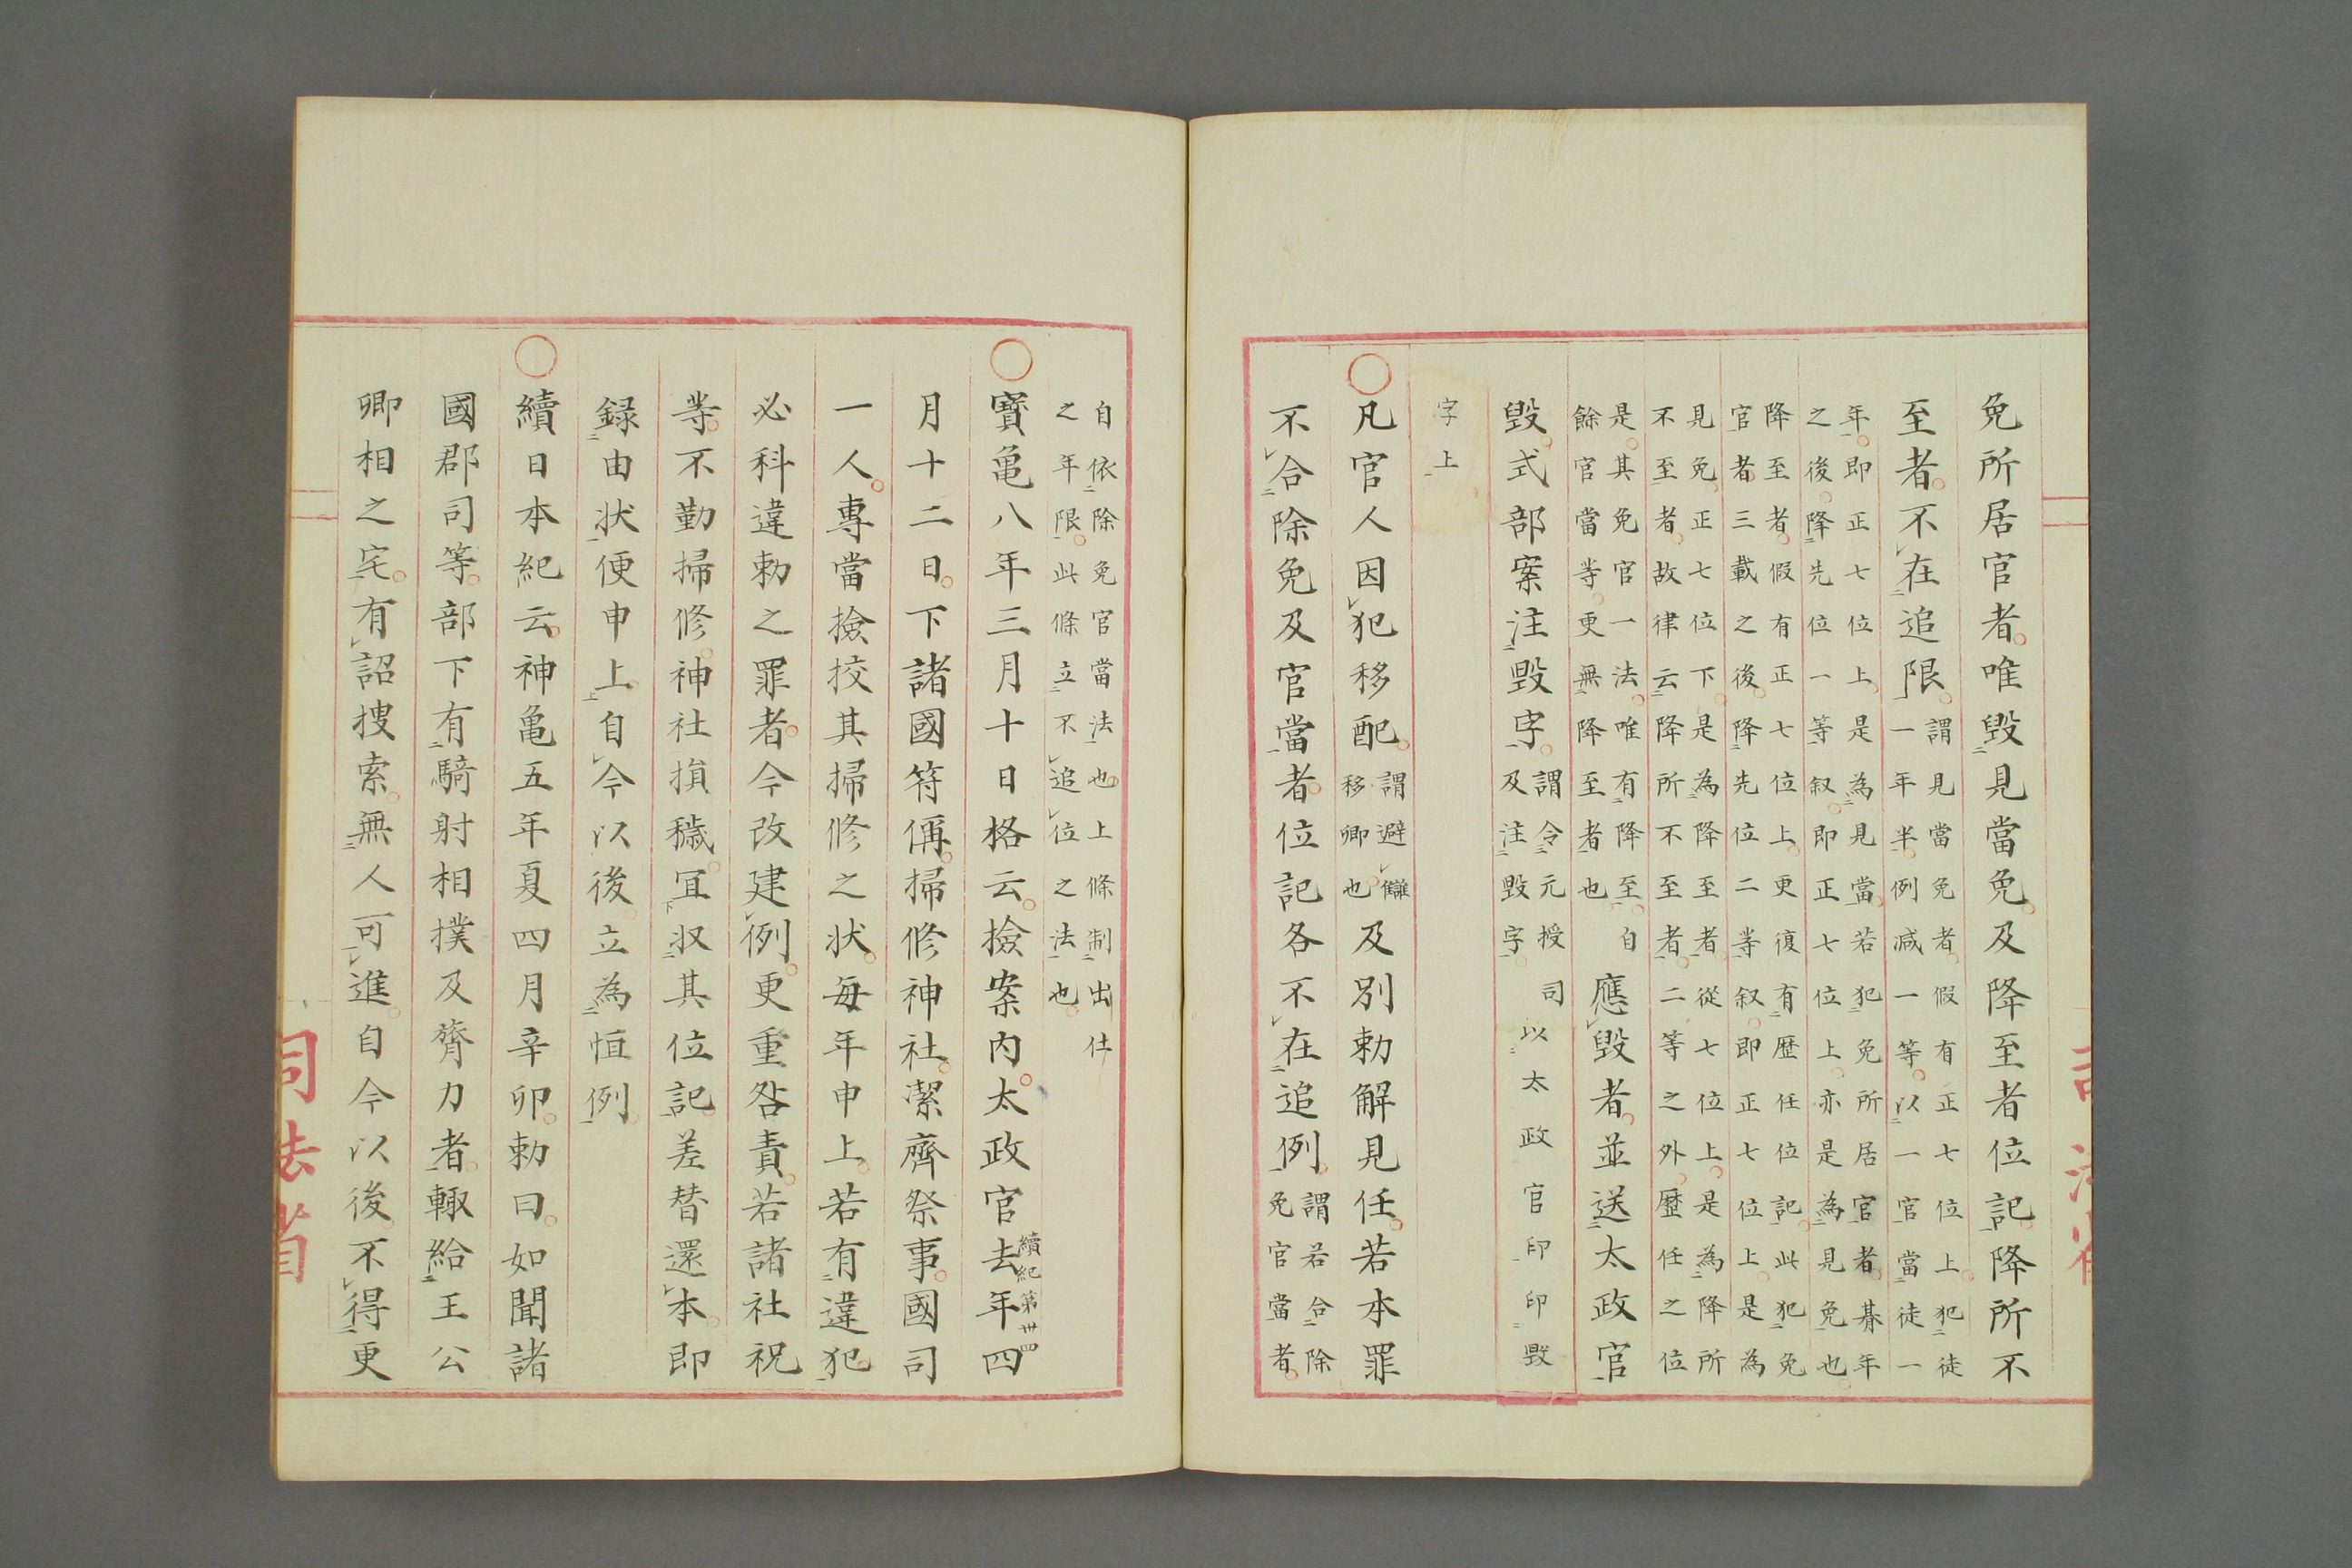 免所居官者唯毀見當免及降至者位記降所不
至者不在追限謂見當免者假有正七位上犯徒
一年半例減一等以一官當徒一
年即正七位上是為見當若犯免所居官者朞年
之後降先位一等叙即正七位上亦是為見免也
降至者假有正七位上更復有歴任位記此犯免
官者三載之後降先位二等叙即正七位上是為
見免正七位下是為降至者從七位上是為降所
不至者故律云降所不至者二等之外歷任之位
是其免官一法唯有降至自
餘官當等更無降至者也應毀者並送太政官
毀式部案注毀字謂令元授司
及注毀字以太政官印印毀
字上
○凡官人因犯移配謂避讎
移鄉也及別勅解見任若本罪
不合除免及官當者位記各不在追例謂若合除
免官當者
自依除免官當法也上條制出仕
之年限此條立不追位之法也
○寳亀八年三月十日格云撿案内太政官去年四
續紀第卅四
月十二日下諸國符偁掃修神社潔齊祭事國司
一人專當撿挍其掃修之状毎年申上若有違犯
必科違勅之罪者今改建例更重咎責若諸社祝
等不勤掃修神社損穢冝収其位記差替還本即
録由状便申上自今以後立為恒例
○續日本紀云神亀五年夏四月辛卯勅曰如聞諸
國郡司等部下有騎射相撲及膂力者輙給王公
卿相之宅有詔捜索無人可進自今以後不得更
司法省